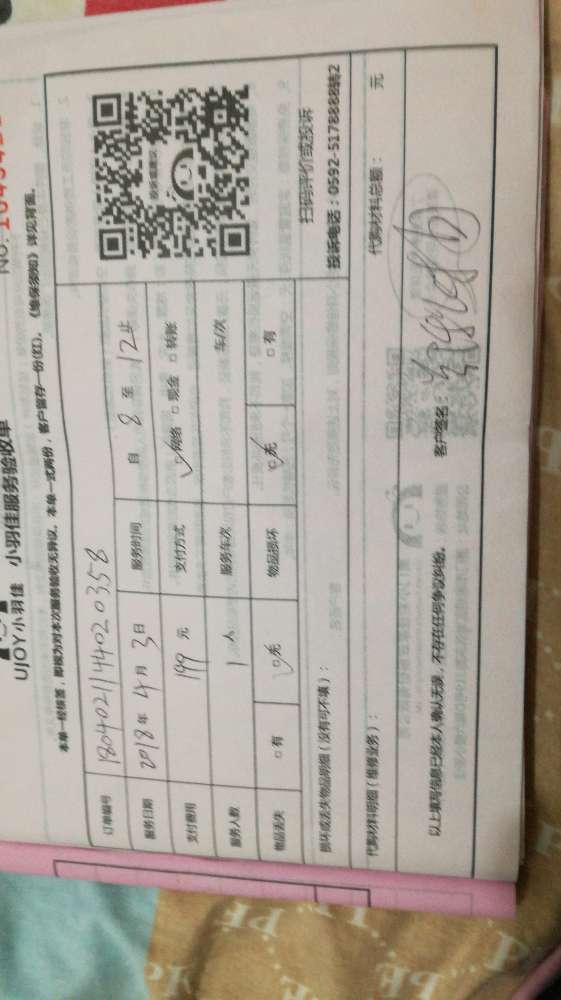 UJOY小羽佳 小羽佳服务验收单
本单一经核签，即视为对本次服务验收无异议。本单一式两份，客户留存一份(红)。《维保须知》详见背面。
订单编号 1804021144020358
服务日期 2018年4月3日 服务时间 自 8 至 12止
支付费用 199 元 支付方式 网络 现金 转账
服务人数 1 人 服务车次 车/次
物品丢失 有 无 物品损坏 无 有
投诉或建议
扫码评价或投诉
投诉电话：0592-5178888转2
损坏或丢失物品明细（没有可不填）：
代购材料明细（维修业务）： 代购材料总额： 元
以上填写信息已经本人确认无误，不存在任何争议纠纷。 客户签名：